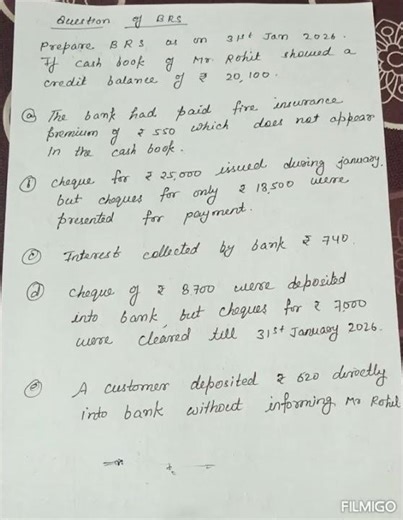 Question of BRS
Prepare BRS as on 31st Jan 2026.
If cash book of Mr. Rohit showed a
credit balance of ₹ 20,100.
(a) The bank had paid fire insurance
premium of ₹ 550 which does not appear
in the cash book.
(b) cheque for ₹ 25,000 issued during january.
but cheques for only ₹ 18,500 were
presented for payment.
(c) Interest collected by bank ₹ 740.
(d) cheque of ₹ 8,700 were deposited
into bank but cheques for ₹ 7,000
were cleared till 31st January 2026.
(e) A customer deposited ₹ 620 directly
into bank without informing Mr Rohit
FILMIGO